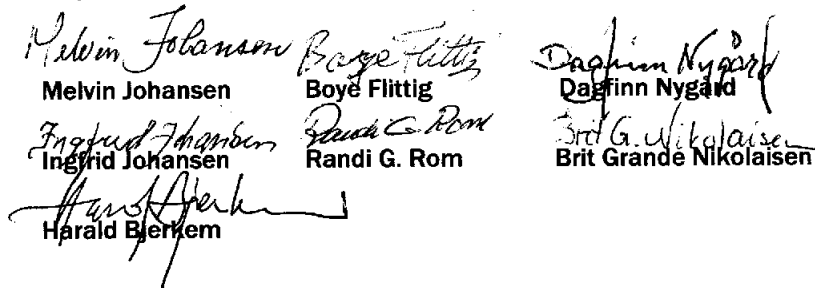 Melvin Johansen Boye Flittig Dagfinn Nygård
Melvin Johansen Boye Flittig Dagfinn Nygård
Ingfrid Johansen Randi G. Rom Brit G. Nikolaisen
Ingfrid Johansen Randi G. Rom Brit Grande Nikolaisen
Harald Bjerkem
Harald Bjerkem